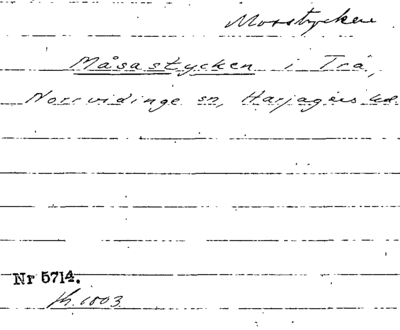 Mosstycken
Måsastycken i Trä,
Norrvidinge sn, Harjagers hd.
Nr 5714.
fk. 1803